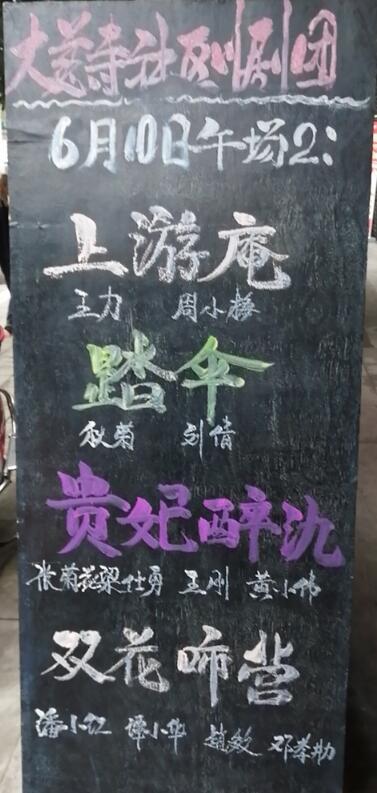 大慈寺社区川剧团
6月10日午场2:
上游庵
王力 周小梅
踏伞
秋菊 刘倩
贵妃醉氿
张菊花 梁仕勇 王刚 黄小伟
双花啼营
潘小红 谭小华 赵敏 邓孝勃